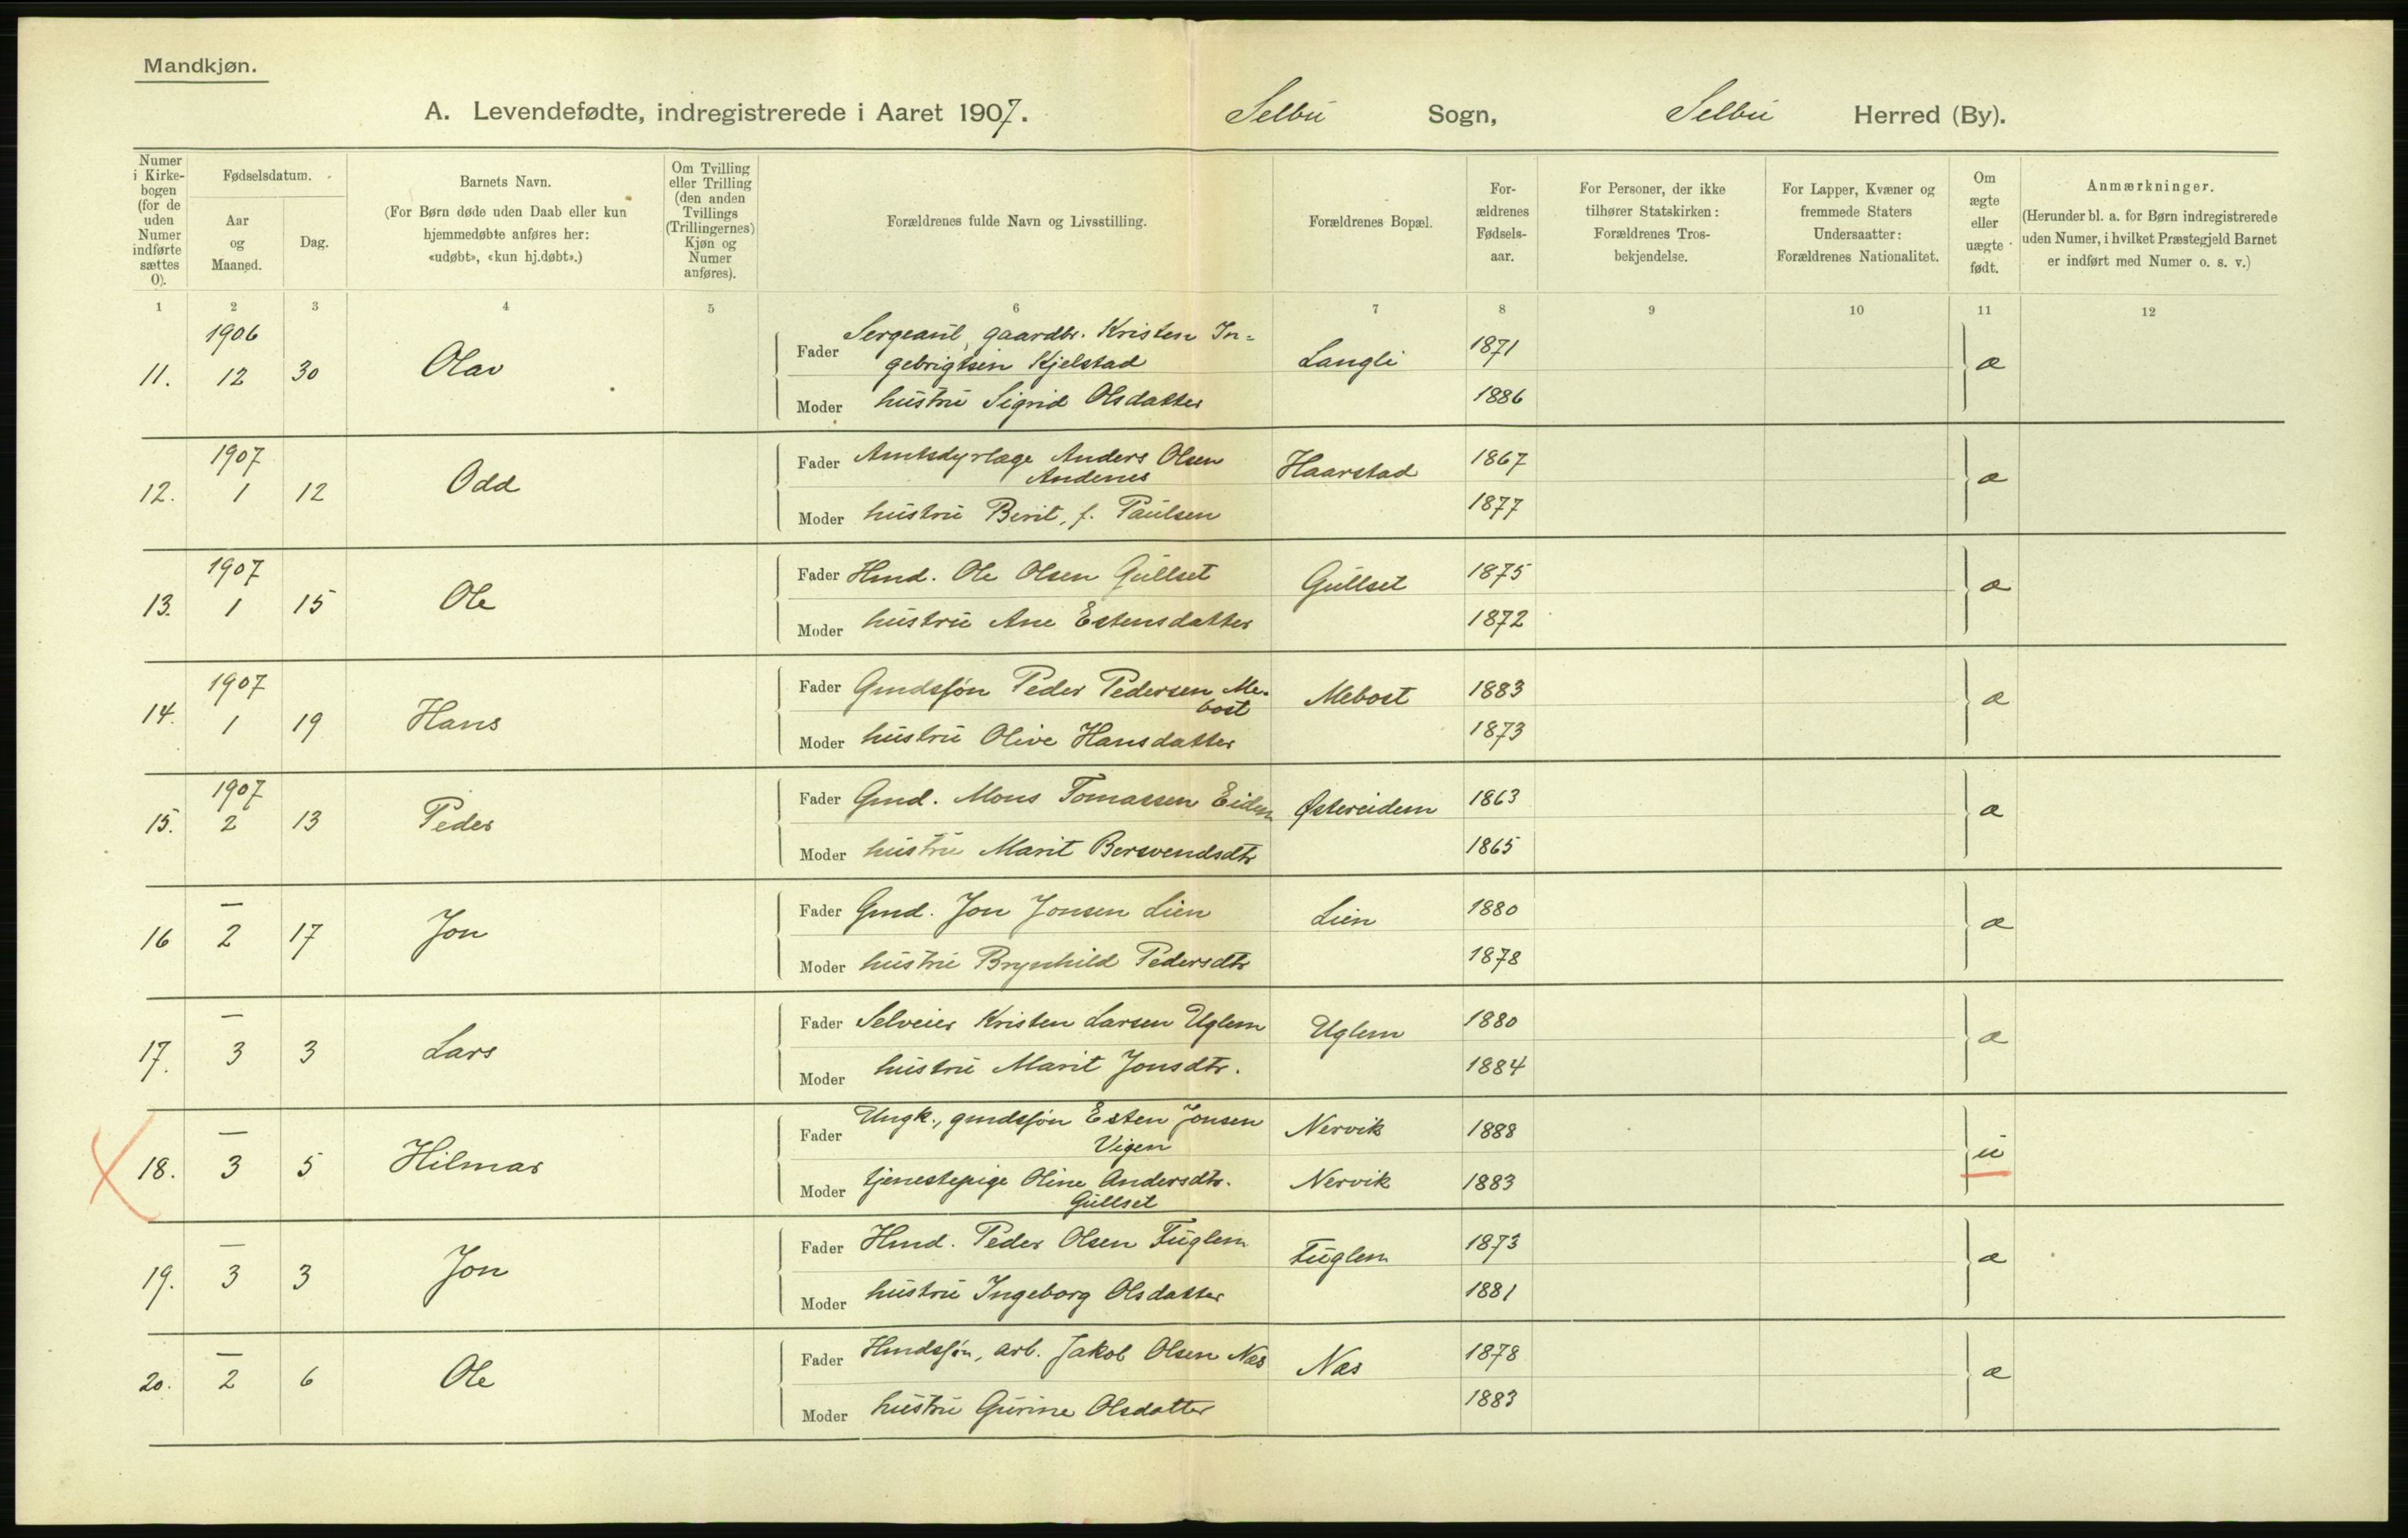 Mandkjøn.
A. Levendefødte, indregistrerede i Aaret 1907. Selbu Sogn, Selbu Herred (By).
Numer i Kirkebogen (for de uden Numer indførte sættes 0).
Fødselsdatum.
Aar og Maaned.
Dag.
Barnets Navn.
(For Børn døde uden Daab eller kun
hjemmedøbte anføres her:
«udøbt», «kun hj.døbt».)
Om Tvilling
eller Trilling
(den anden
Tvillings
(Trillingernes)
Kjøn og
Numer
anføres).
Forældrenes fulde Navn og Livsstilling.
Forældrenes Bopæl.
For-
ældrenes
Fødsels-
aar.
For Personer, der ikke
tilhører Statskirken:
Forældrenes Tros-
bekjendelse.
For Lapper, Kvæner og
fremmede Staters
Undersaatter:
Forældrenes Nationalitet.
Om
ægte
eller
uægte
født.
Anmærkninger.
(Herunder bl. a. for Børn indregistrerede
uden Numer, i hvilket Præstegjeld Barnet
er indført med Numer o. s. v.)
1 2 3 4 5 6 7 8 9 10 11 12
1906
11. 12 30 Olav
Fader Sergeant, gaardbr. Kristen In-
gebrigtsen Kjelstad Langli 1871 æ
Moder hustru Sigrid Olsdatter 1886
1907
12. 1 12 Odd
Fader Amtsdyrlæge Anders Olsen
Andenes Haarstad 1867 æ
Moder hustru Berit, f. Paulsen 1877
1907
13. 1 15 Ole
Fader Hmd. Ole Olsen Gullset Gullset 1875 æ
Moder hustru Ane Estensdatter 1872
1907
14. 1 19 Hans
Fader Gmdssøn Peder Pedersen Me-
bost Mebost 1883 æ
Moder hustru Olive Hansdatter 1873
1907
15. 2 13 Peder
Fader Gmd. Mons Tomassen Eidem Østereidem 1863 æ
Moder hustru Marit Bersvendsdtr 1865
—
16 2 17 Jon
Fader Gmd. Jon Jonsen Lien Lien 1880 æ
Moder hustru Brynhild Pedersdtr 1878
—
17. 3 3 Lars
Fader Selveier Kristen Larsen Uglem Uglem 1880 æ
Moder hustru Marit Jonsdtr. 1884
—
18. 3 5 Hilmar
Fader Ungk., gmdssøn Esten Jonsen
Vigen Nervik 1888 u
Moder tjenestepige Oline Andersdtr.
Gullset Nervik 1883
—
19. 3 3 Jon
Fader Hmd. Peder Olsen Fuglem Fuglem 1873 æ
Moder hustru Ingeborg Olsdatter 1881
—
20. 2 6 Ole
Fader Hmdssøn, arb. Jakob Olsen Næs Næs 1878 æ
Moder hustru Gurine Olsdatter 1883